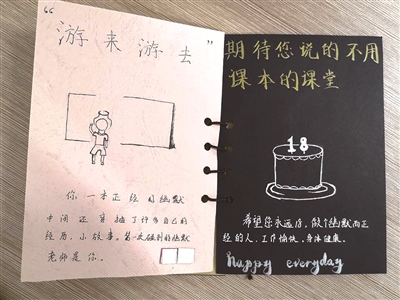 “游来游去”
你一本正经的幽默
中间还穿插了许多自己的
经历,小故事。第一次碰到的幽默
老师是你。
期待您说的不用
课本的课堂
18
希望您永远18,做个幽默而正
经的人,工作愉快,身体健康。
happy everyday